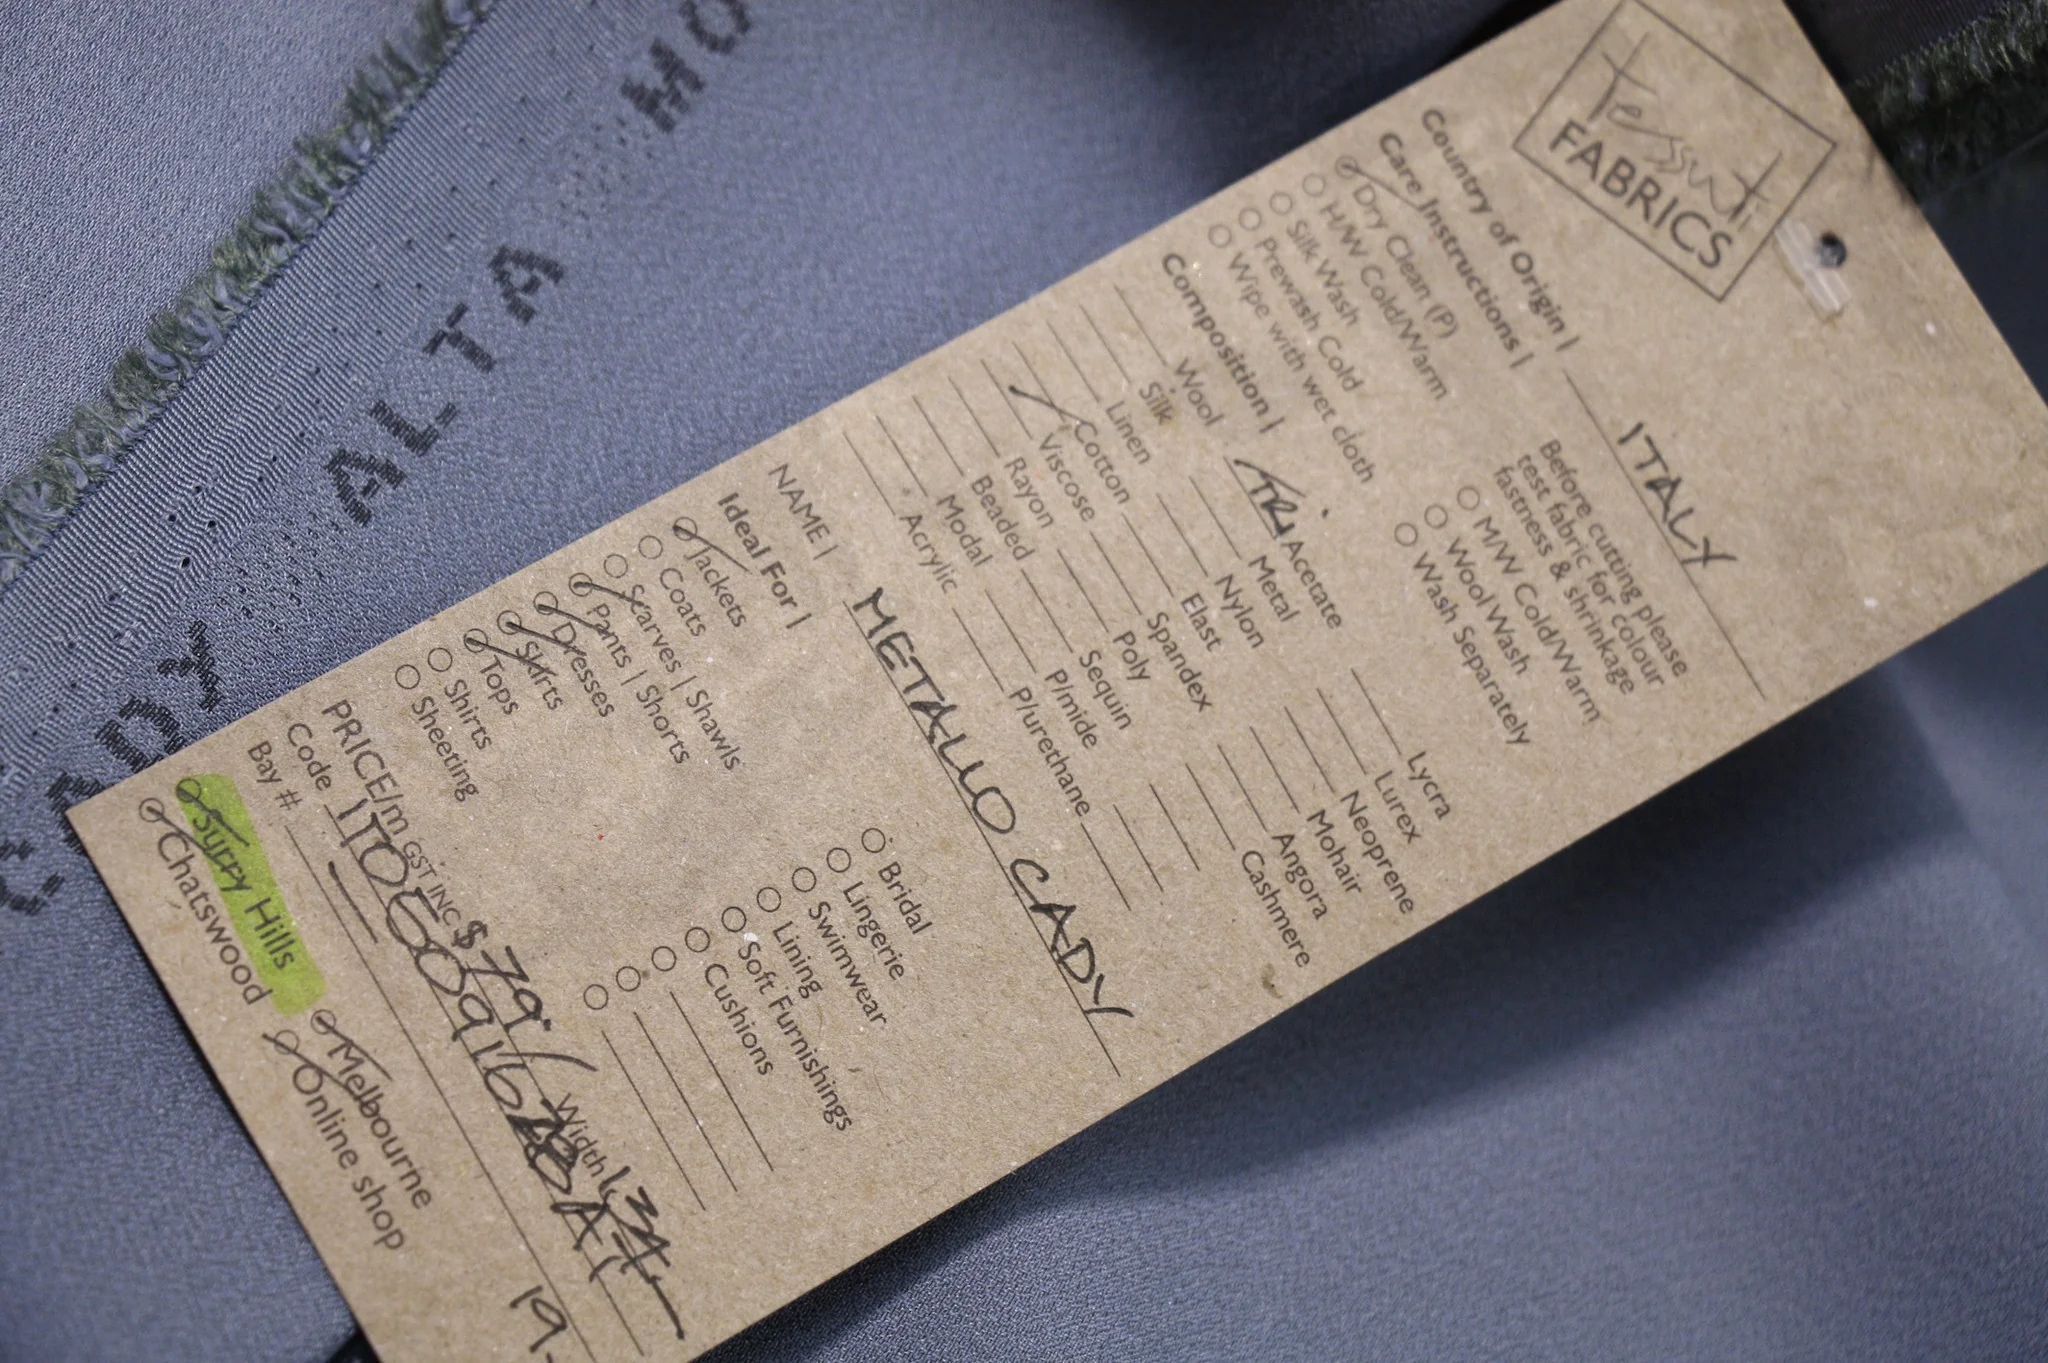 Tessuti
FABRICS
Country of Origin | ITALY
Care Instructions |
Dry Clean (P)
H/W Cold/Warm
Silk Wash
Prewash Cold
Wipe with wet cloth
Before cutting please
test fabric for colour
fastness & shrinkage
M/W Cold/Warm
Wool Wash
Wash Separately
Composition |
Wool TRI Acetate Lycra
Silk Metal Lurex
Linen Nylon Neoprene
Cotton Elast Mohair
Viscose Spandex Angora
Rayon Poly Cashmere
Beaded Sequin
Modal P/mide
Acrylic P/urethane
NAME | METALLO CADY
Ideal For |
Jackets
Coats
Scarves | Shawls
Pants | Shorts
Dresses
Skirts
Tops
Shirts
Sheeting
Bridal
Lingerie
Swimwear
Lining
Soft Furnishings
Cushions
PRICE/m GST INC $79. Width
Code
Bay #
19.
Surry Hills
Melbourne
Chatswood
Online shop
CADY ALTA MO